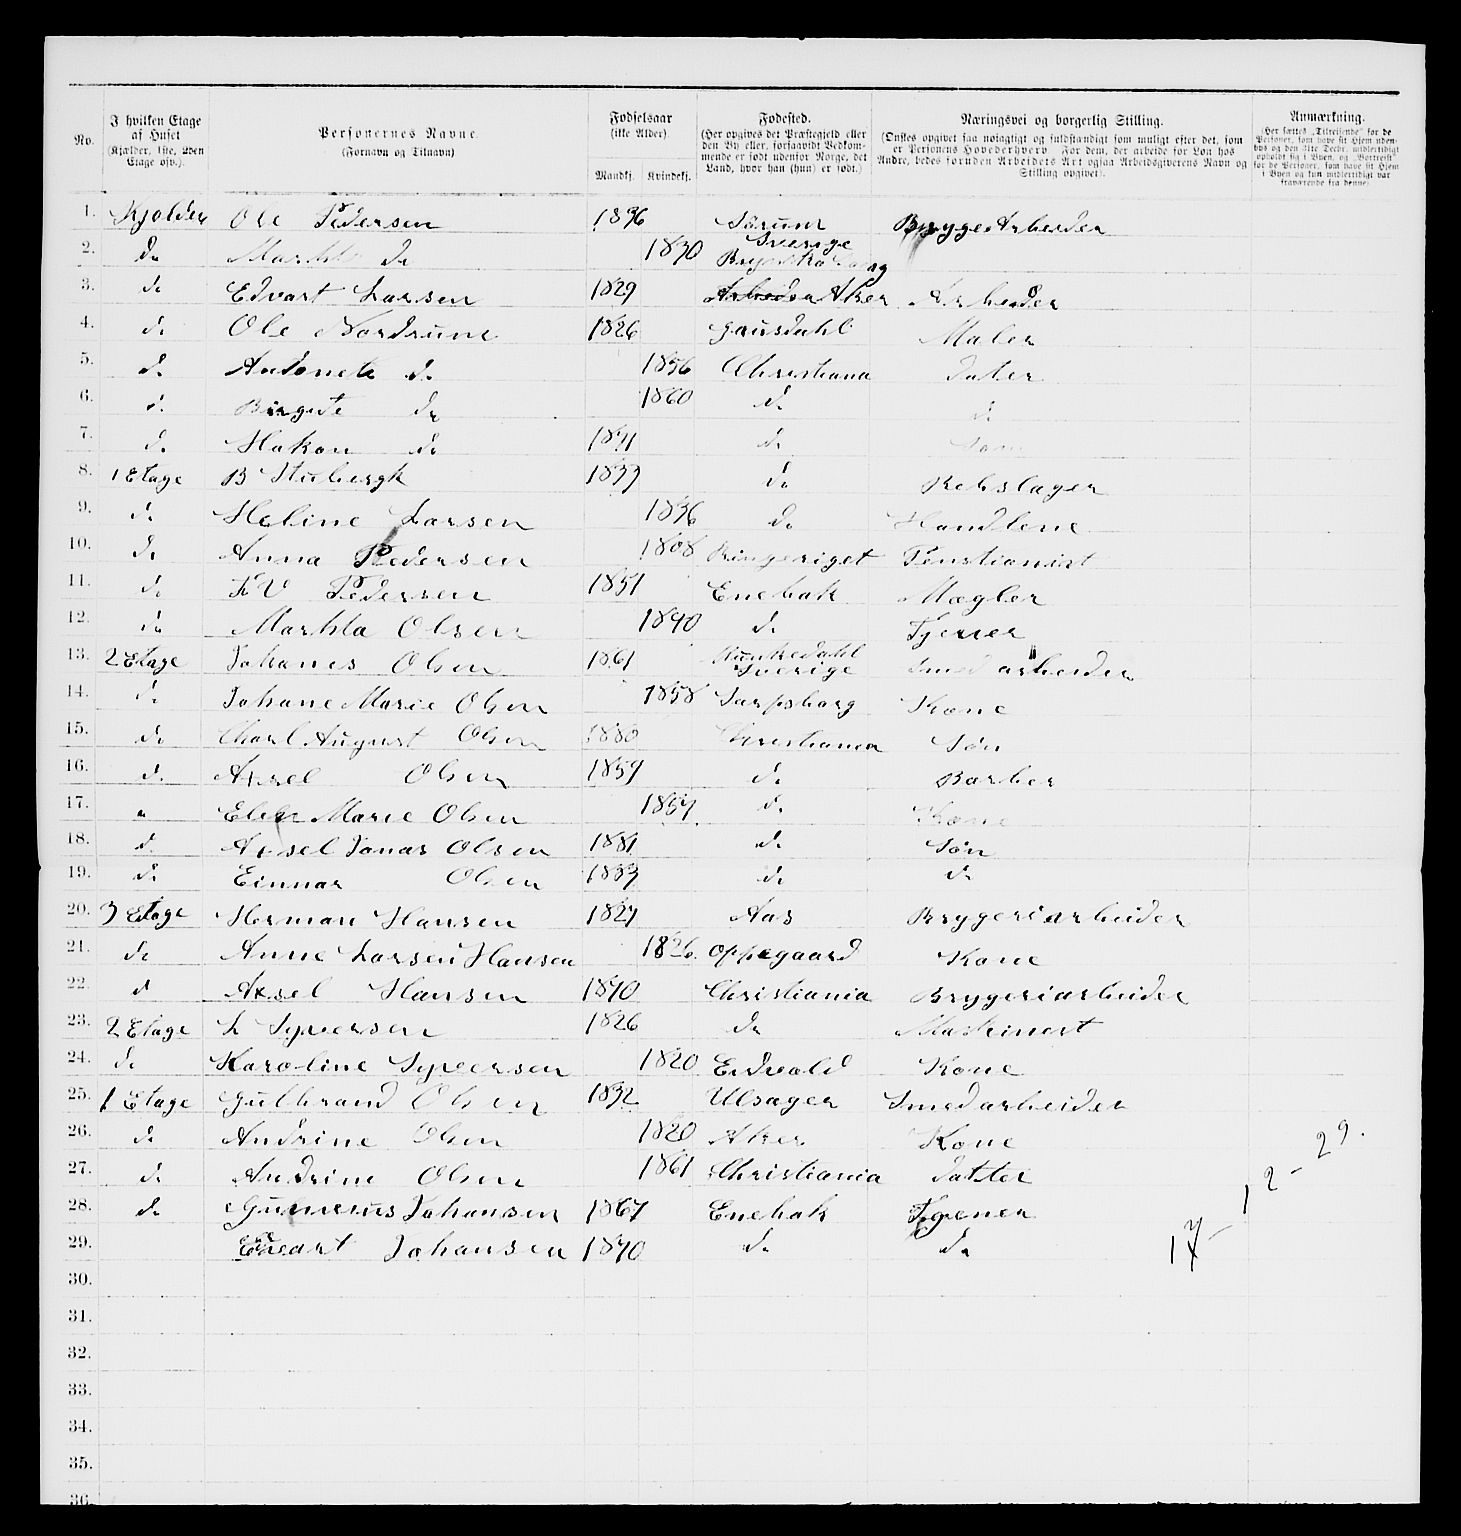 No. I hvilken Etage af Huset (Kjælder, 1ste, 2den Etage osv.). Personernes Navne. (Fornavn og Tilnavn) Fødselsaar (ikke Alder). Mandkj. Kvindekj. Fødested. (Her opgives det Præstegjeld eller den By eller, forsaavidt Vedkommende er født udenfor Norge, det Land, hvor han (hun) er født.) Næringsvei og borgerlig Stilling. (Ønskes opgivet saa nøiagtigt og fuldstændigt som muligt efter det, som er Personens Hovederhverv. For dem, der arbeide for Løn hos Andre, bedes foruden Arbeidets Art ogsaa Arbeidsgiverens Navn og Stilling opgivet). Anmærkning. (Her sættes „Tilreisende" for de Personer, som have sit Hjem udenbys og den 31te Decbr. midlertidigt opholdt sig i Byen, og „Bortreist" for de Personer, som have sit Hjem i Byen og kun midlertidigt var fraværende fra denne).
1. Kjolder Ole Pedersen 1836 Sørum BryggeArbeider
2. do Marhta do 1830 Sverige
3. do Edvart Larsen 1829 Aker Arbeider
4. do Ole Nordrum 1826 Gausdahl Maler
5. do Antonete do 1856 Christiana Dater
6. do Birgete do 1860 do do
7. do Hakon do 1871 do Søn
8. 1 Etage B Stubergk 1833 do Rebslager
9. do Heline Larsen 1836 do Handlene
10. do Anna Pedersen 1808 Ringeriget Penstionist
11. do Pedersen 1851 Enebak Mægler
12. do Marhta Olsen 1840 do Tjener
13. 2 Etage Johanes Olsen 1861 Sverige Smed arbeider
14. do Johane Marie Olsen 1858 Sarpsborg Kone
15. do Charl August Olsen 1880 Christiania Søn
16. do Axsel Olsen 1859 do Barber
17. " Elen Marie Olsen 1857 do Kone
18. do Axsel Jonas Olsen 1881 do Søn
19. do Einnar Olsen 1883 do do
20. 3 Etage Herman Hansen 1827 Aas Brygeriarbeider
21. do Anne Larsen Hansen 1826 Oppegaard Kone
22. do Axsel Hansen 1870 Christiania Brygeriarbeider
23. 2 Etage L Syversen 1826 do Maskinest
24. do Karoline Syversen 1820 Eidvold Kone
25. 1 Etage Gulbrand Olsen 1832 Ulsager Smedarbeider
26. do Andrine Olsen 1820 Aker Kone
27. do Andrine Olsen 1861 Christiania Datter
28. do Gunerius Johansen 1867 Enebak Tjener
29. Edvart Johansen 1870 do do
17 - 12 - 29.
30.
31.
32.
33.
34.
35.
36.